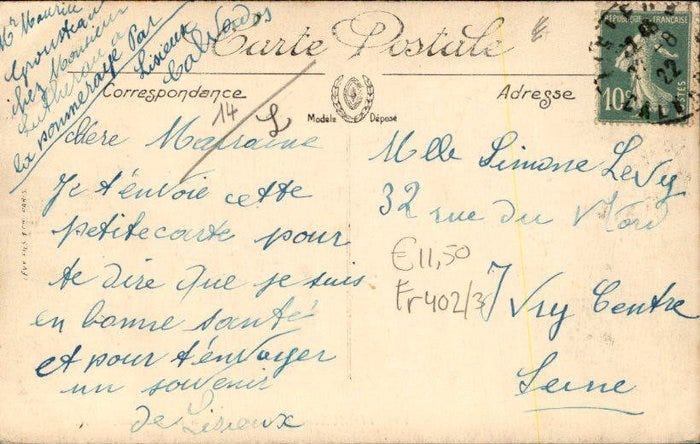 Mr Maurice
chez Monsieur
la pommeraye Par
Lisieux
Calvados
Carte Postale
Correspondance
Adresse
Modèle Déposé
14
L
chère Marraine
Je t'envoie cette
petite carte pour
te dire que je suis
en bonne santé
et pour t'envoyer
un souvenir
de Lisieux
REPUBLIQUE FRANÇAISE
10c
POSTES
22
Mlle Simone Levy
32 rue du Nord
€11,50
Fr402/3
Ivry Centre
Seine